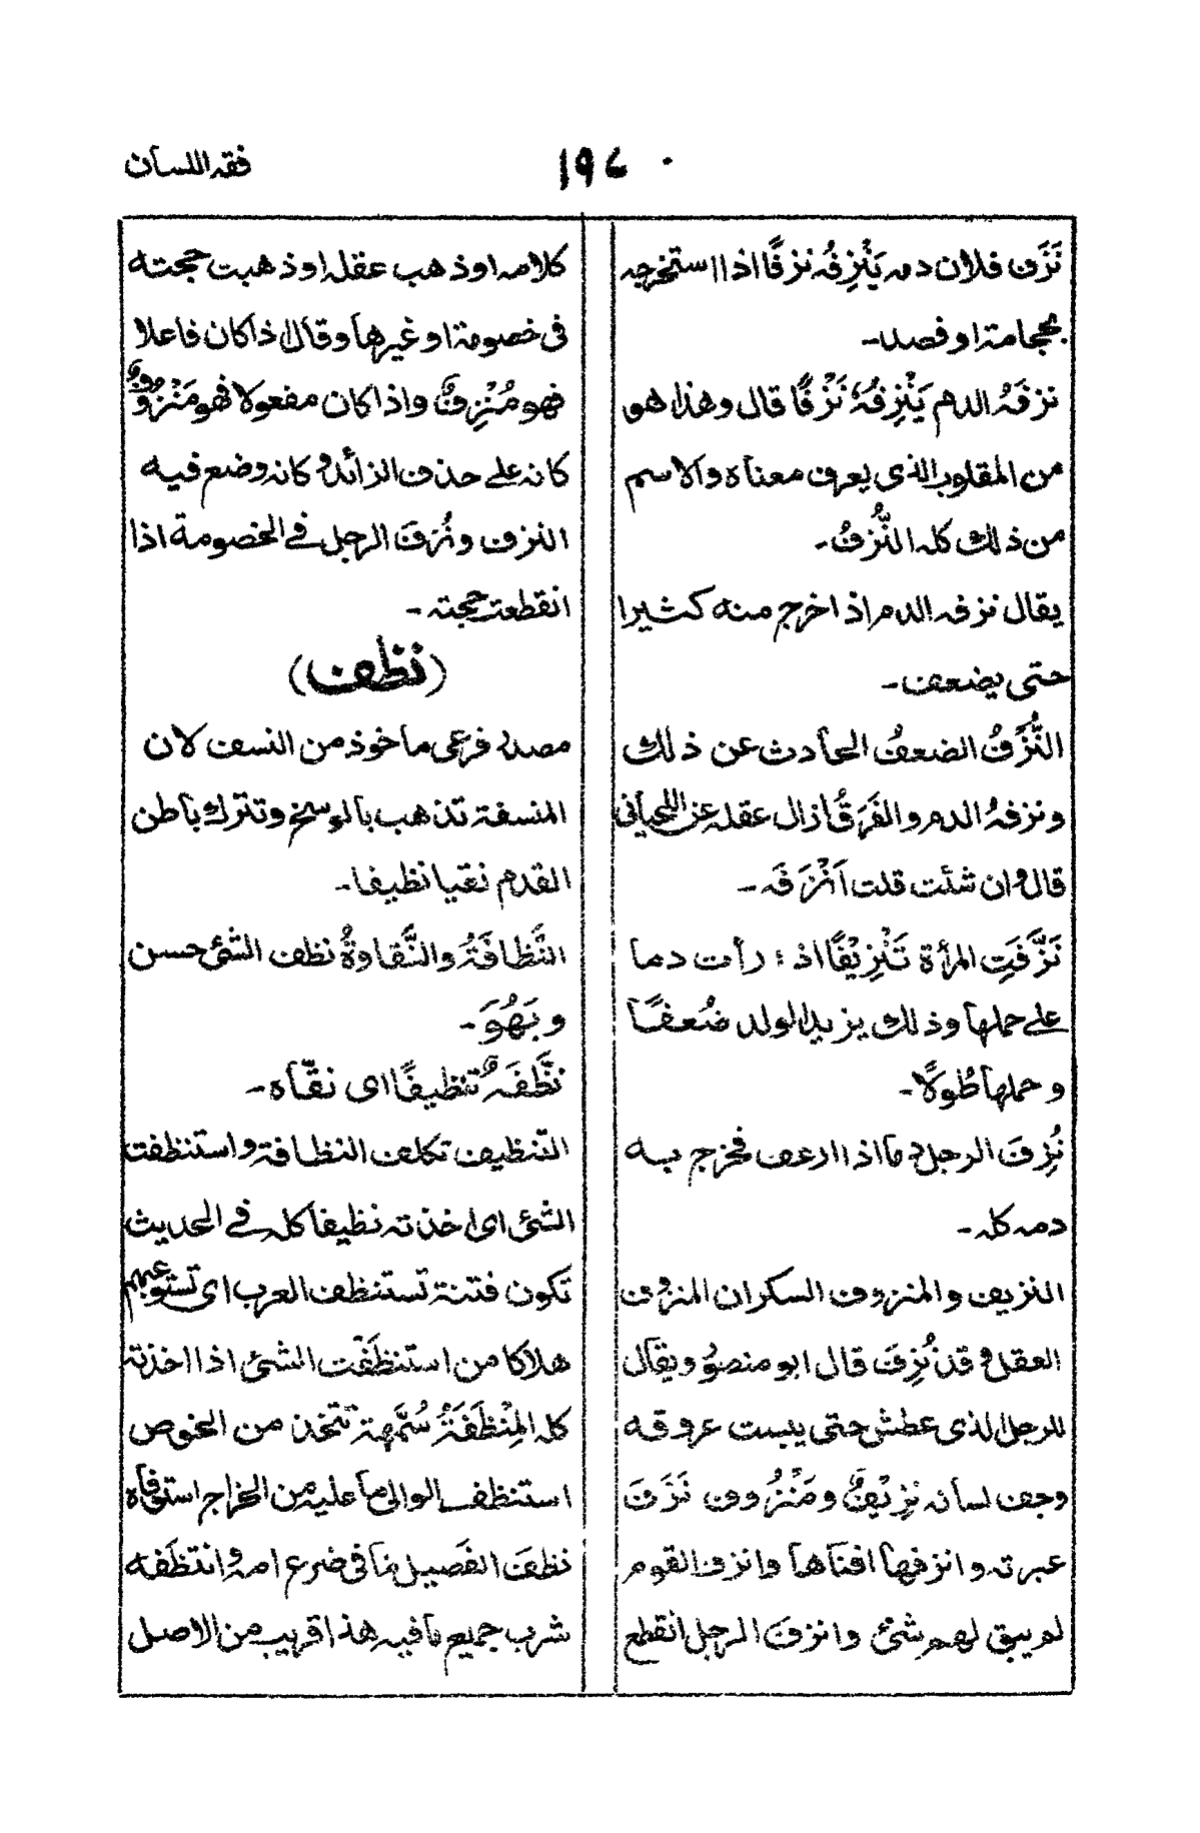 فقه اللسان
١٩٤
نَزَفَ فلان دمه يَنْزِفُه نزفًا اذا استخرجه
بحجامة او فصد۔
نزفَهُ الدم يَنْزِفُهٗ نَزْفًا قال وهذا هو
من المقلوب الذى يعرف معناه والاسم
من ذلك كله النُّزفُ۔
يقال نزفه الدم اذا خرج منه كثيرا
حتى يضعف۔
النُّزْفُ الضعفُ الحادث عن ذلك
ونزفهُ الدم والفَرَقُ ازال عقله عن اللحيانى
قال وان شئت قلت اَنْزَفَه۔
نَزَّفَتِ المرأة تَنْزِيْفًا اذ؛ رأت دما
على حملها وذلك يزيد الولد ضُعفًا
وحملها طُولًا۔
نُزِفَ الرجل دما اذا ارعف فخرج به
دمه كله۔
النزيف والمنزوف السكران المنزوف
العقل وقد نُزِفَ قال ابو منصور ويقال
للرجل الذى عطش حتى يبست عروقه
وجف لسانه نزِيْفٌ ومَنْزُوف نَزَفَ
عبرته وانزفها افناها وانزف القوم
لم يبق لهم شئ وانزفَ الرجل انقطع
كلامه او ذهب عقله او ذهبت حجته
فى خصومة او غيرها وقال اذا كان فاعلا
فهو مُنْزِفٌ واذا كان مفعولا فهو مَنْزُوْفٌ
كانه على حذف الزائد و كانه وضع فيه
النزف ونُزِفَ الرجل فى الخصومة اذا
انقطعت حجته۔
(نظف)
مصدر فرعى ماخوذ من النسف لان
المنسفة تذهب بالوسخ وتترك باطن
القدم نقيا نظيفا۔
النَّظافَةُ والنَّقاوةُ نظف الشئ حسن
وبَهُوَ۔
نَظَّفَهٗ تنظيفًا اى نقّاه۔
التنظيف تكلف النظافة واستنظفت
الشئ اى اخذته نظيفا كله فى الحديث
تكون فتنة تستنظف العرب اى تستوعبهم
هلاكا من استنظَفْت الشئ اذا اخذته
كله المِنْظَفَةُ سُمَّهة تتخذ من الخوص
استنظف الوالى ما عليه من الخراج استوفاه
نظفَ الفَصيل ما فى ضرع امه وانتظَفه
شرب جميع ما فيه هذا قريب من الاصل